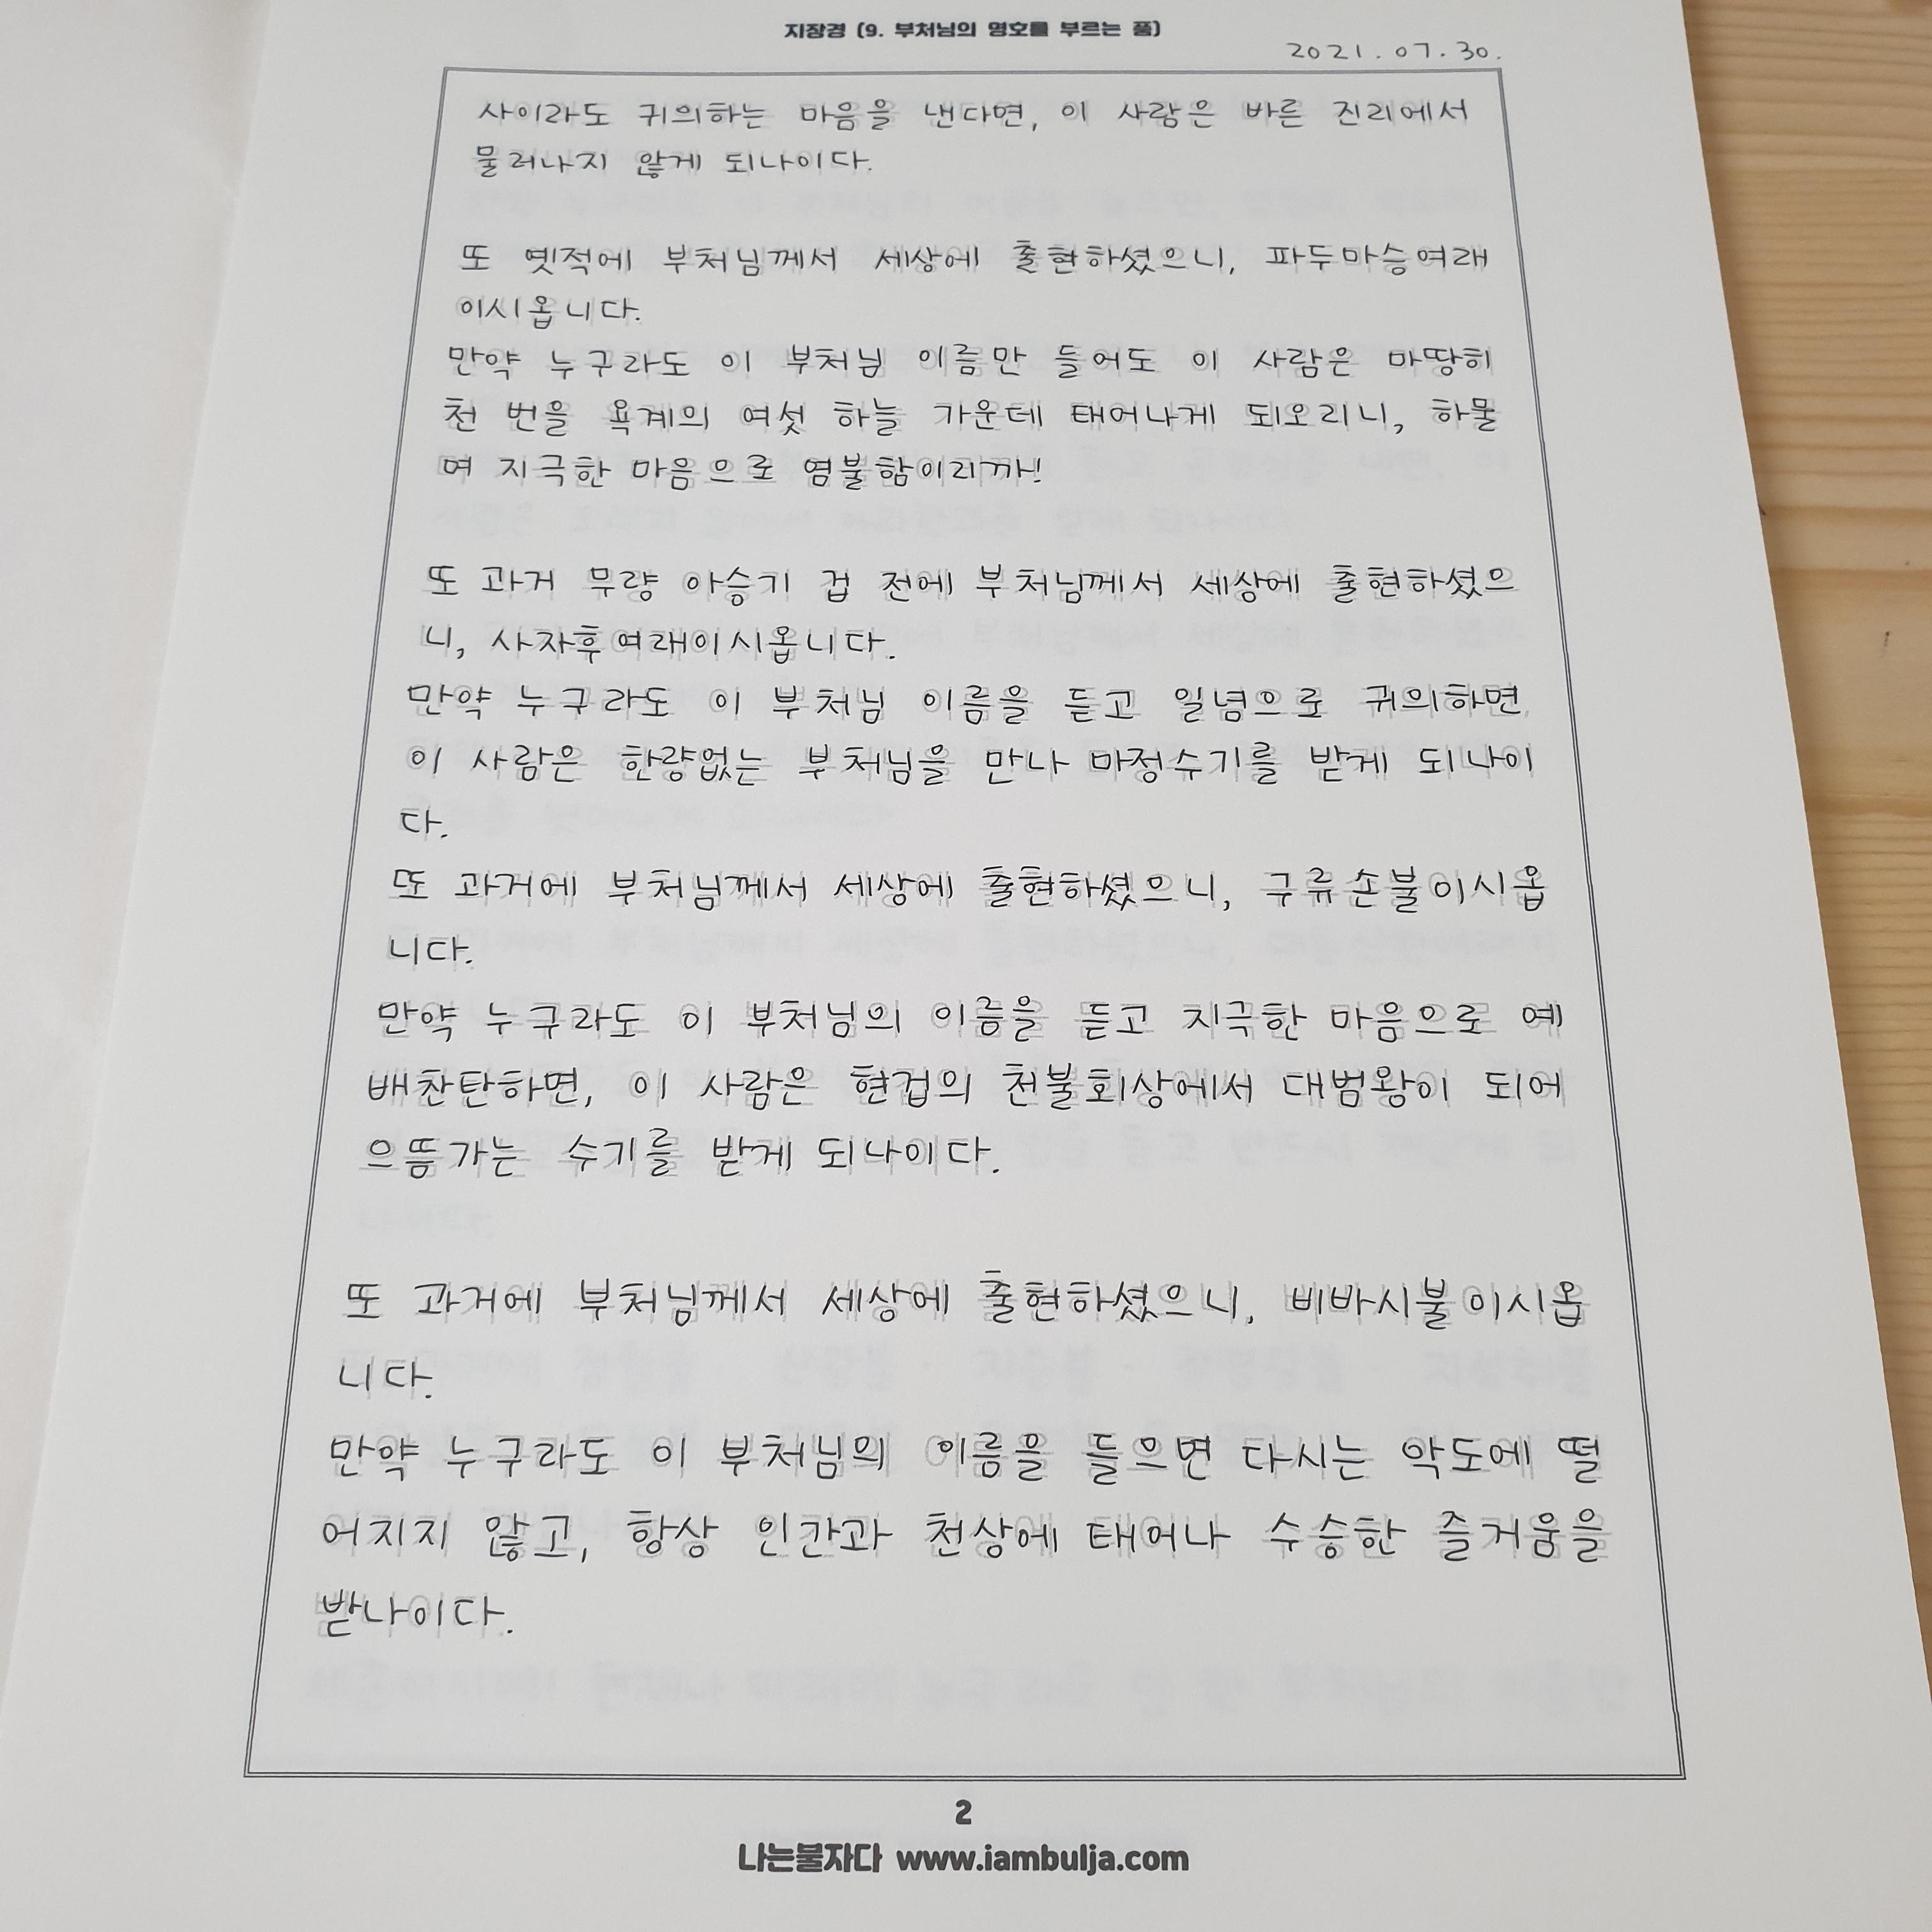 지장경 (9. 부처님의 명호를 부르는 품)
2021.07.30.
사이라도 귀의하는 마음을 낸다면, 이 사람은 바른 진리에서
물러나지 않게 되나이다.
또 옛적에 부처님께서 세상에 출현하셨으니, 파두마승여래
이시옵니다.
만약 누구라도 이 부처님 이름만 들어도 이 사람은 마땅히
천 번을 욕계의 여섯 하늘 가운데 태어나게 되오리니, 하물
며 지극한 마음으로 염불함이리까!
또 과거 무량 아승기 겁 전에 부처님께서 세상에 출현하셨으
니, 사자후여래이시옵니다.
만약 누구라도 이 부처님 이름을 듣고 일념으로 귀의하면
이 사람은 한량없는 부처님을 만나 마정수기를 받게 되나이
다.
또 과거에 부처님께서 세상에 출현하셨으니, 구류손불이시옵
니다.
만약 누구라도 이 부처님의 이름을 듣고 지극한 마음으로 예
배찬탄하면, 이 사람은 현겁의 천불회상에서 대범왕이 되어
으뜸가는 수기를 받게 되나이다.
또 과거에 부처님께서 세상에 출현하셨으니, 비바시불이시옵
니다.
만약 누구라도 이 부처님의 이름을 들으면 다시는 악도에 떨
어지지 않고, 항상 인간과 천상에 태어나 수승한 즐거움을
받나이다.
2
나는불자다 www.iambulja.com